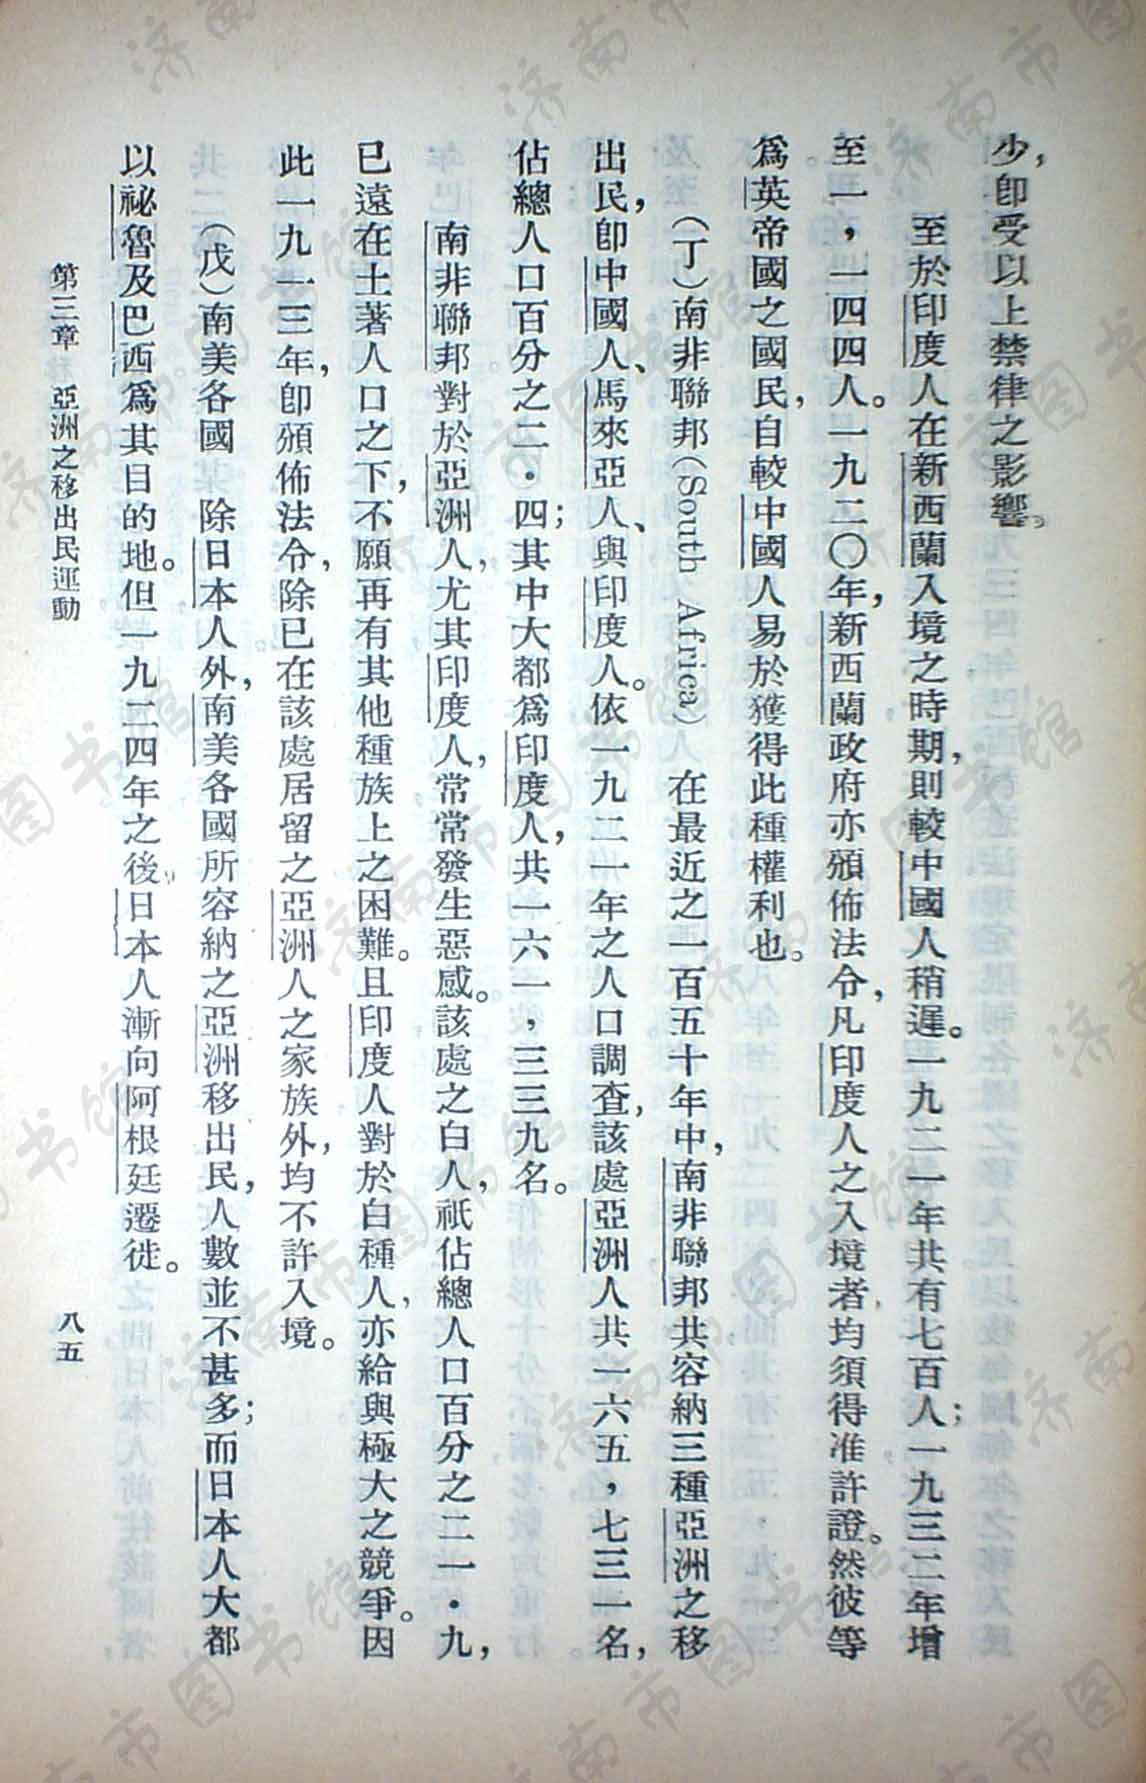 少，卽受以上禁律之影響。
至於印度人在新西蘭入境之時期，則較中國人稍遲。一九二一年共有七百人；一九三二年增
至一，一四四人。一九二〇年，新西蘭政府亦頒佈法令，凡印度人之入境者，均須得准許證。然彼等
爲英帝國之國民，自較中國人易於獲得此種權利也。
（丁）南非聯邦（South Africa）　在最近之一百五十年中，南非聯邦共容納三種亞洲之移
出民，卽中國人、馬來亞人、與印度人。依一九二一年之人口調查，該處亞洲人共一六五，七三一名，
佔總人口百分之二・四；其中大都爲印度人，共一六一，三三九名。
南非聯邦對於亞洲人，尤其印度人，常常發生惡感。該處之白人，祇佔總人口百分之二一・九，
已遠在土著人口之下，不願再有其他種族上之困難。且印度人對於白種人，亦給與極大之競爭。因
此一九一三年，卽頒佈法令，除已在該處居留之亞洲人之家族外，均不許入境。
（戊）南美各國　除日本人外，南美各國所容納之亞洲移出民，人數並不甚多；而日本人大都
以祕魯及巴西爲其目的地。但一九二四年之後，日本人漸向阿根廷遷徙。
第三章　亞洲之移出民運動
八五
济南市图书馆